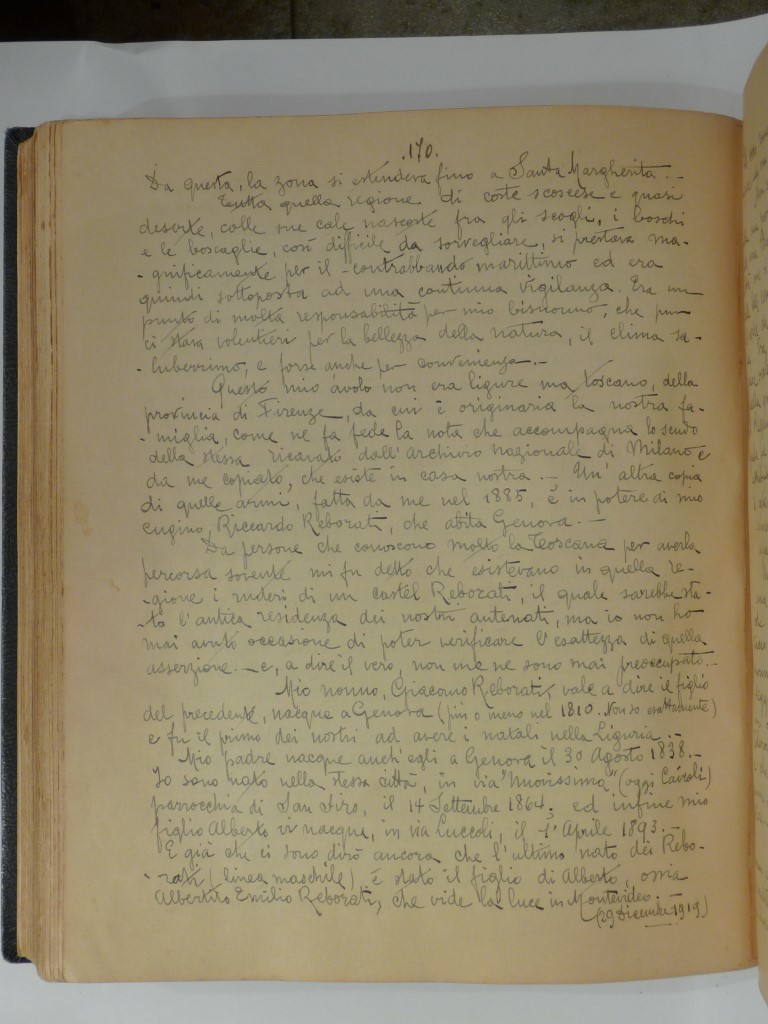 .170.
Da questa, la zona si estendeva fino a Santa Margherita. -
Tutta quella regione di coste scoscese e quasi
deserte, colle sue cale nascoste fra gli scogli, i boschi
e le boscaglie, così difficile da sorvegliare, si prestava ma-
- gnificamente per il contrabbando marittimo ed era
quindi sottoposta ad una continua vigilanza. Era un
punto di molta responsabilità per mio bisnonno, che pur
ci stava volontieri per la bellezza della natura, il clima sa-
- luberrimo, e forse anche per convenienza. -
Questo mio avolo non era ligure ma toscano, della
provincia di Firenze, da cui è originaria la nostra fa-
- miglia, come ne fa fede la nota che accompagna lo scudo
della stessa ricavato dall'archivio nazionale di Milano e
da me copiato, che esiste in casa nostra. - Un'altra copia
di quelle armi, fatta da me nel 1885, è in potere di mio
cugino, Riccardo Reborati, che abita Genova. -
Da persone che conoscono molto la Toscana per averla
percorsa sovente mi fu detto che esistevano in quella re-
- gione i ruderi di un castel Reborati, il quale sarebbe sta-
- to l'antica residenza dei nostri antenati, ma io non ho
mai avuto occasione di poter verificare l'esattezza di quella
asserzione - e, a dire il vero, non me ne sono mai preoccupato. -
Mio nonno, Giacomo Reborati, vale a dire il figlio
del precedente, nacque a Genova (più o meno nel 1810. Non so esattamente)
e fu il primo dei nostri ad avere i natali nella Liguria. -
Mio padre nacque anch'egli a Genova il 30 Agosto 1838. -
Io sono nato nella stessa città, in via "Nuovissima" (oggi Cairoli)
parrocchia di San Siro, il 14 Settembre 1864. ed infine mio
figlio Alberto vi nacque, in via Luccoli, il Aprile 1893. -
E già che ci sono dirò ancora che l'ultimo nato dei Rebo-
- rati (linea maschile) è stato il figlio di Alberto, ossia
Albertito Emilio Reborati, che vide la luce in Montevideo. -
(29 Dicembre 1919)